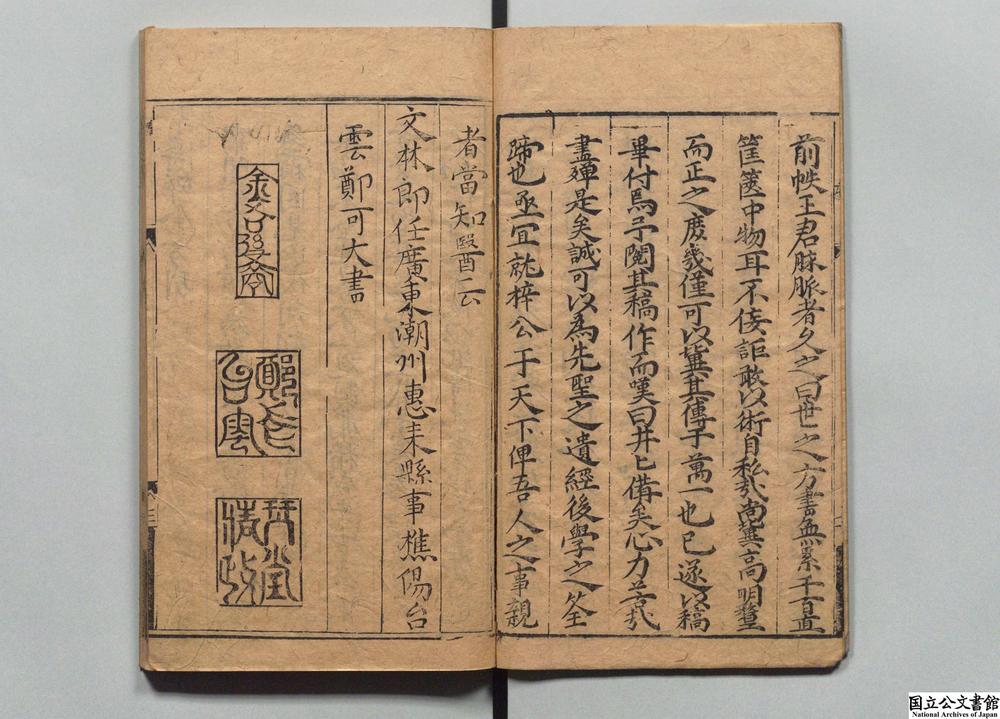 前帙王君脉脈者久之曰世之方書無累千百直
筐篋中物耳不佞詎敢以術自私哉尚冀高明釐
而正之庶幾僅可以冀其傳于萬一也已遂以稿
畢付焉予閱其稿作而嘆曰井匕備矣心力并哉
盡殫是矣誠可以為先聖之遺經後學之筌
蹄也亟宜就梓公于天下俾吾人之事親
者當知醫云
文林郎任廣東潮州惠來縣事樵陽台
雲鄭可大書
鄭氏
台雲
琴堂
清政
国立公文書館
National Archives of Japan